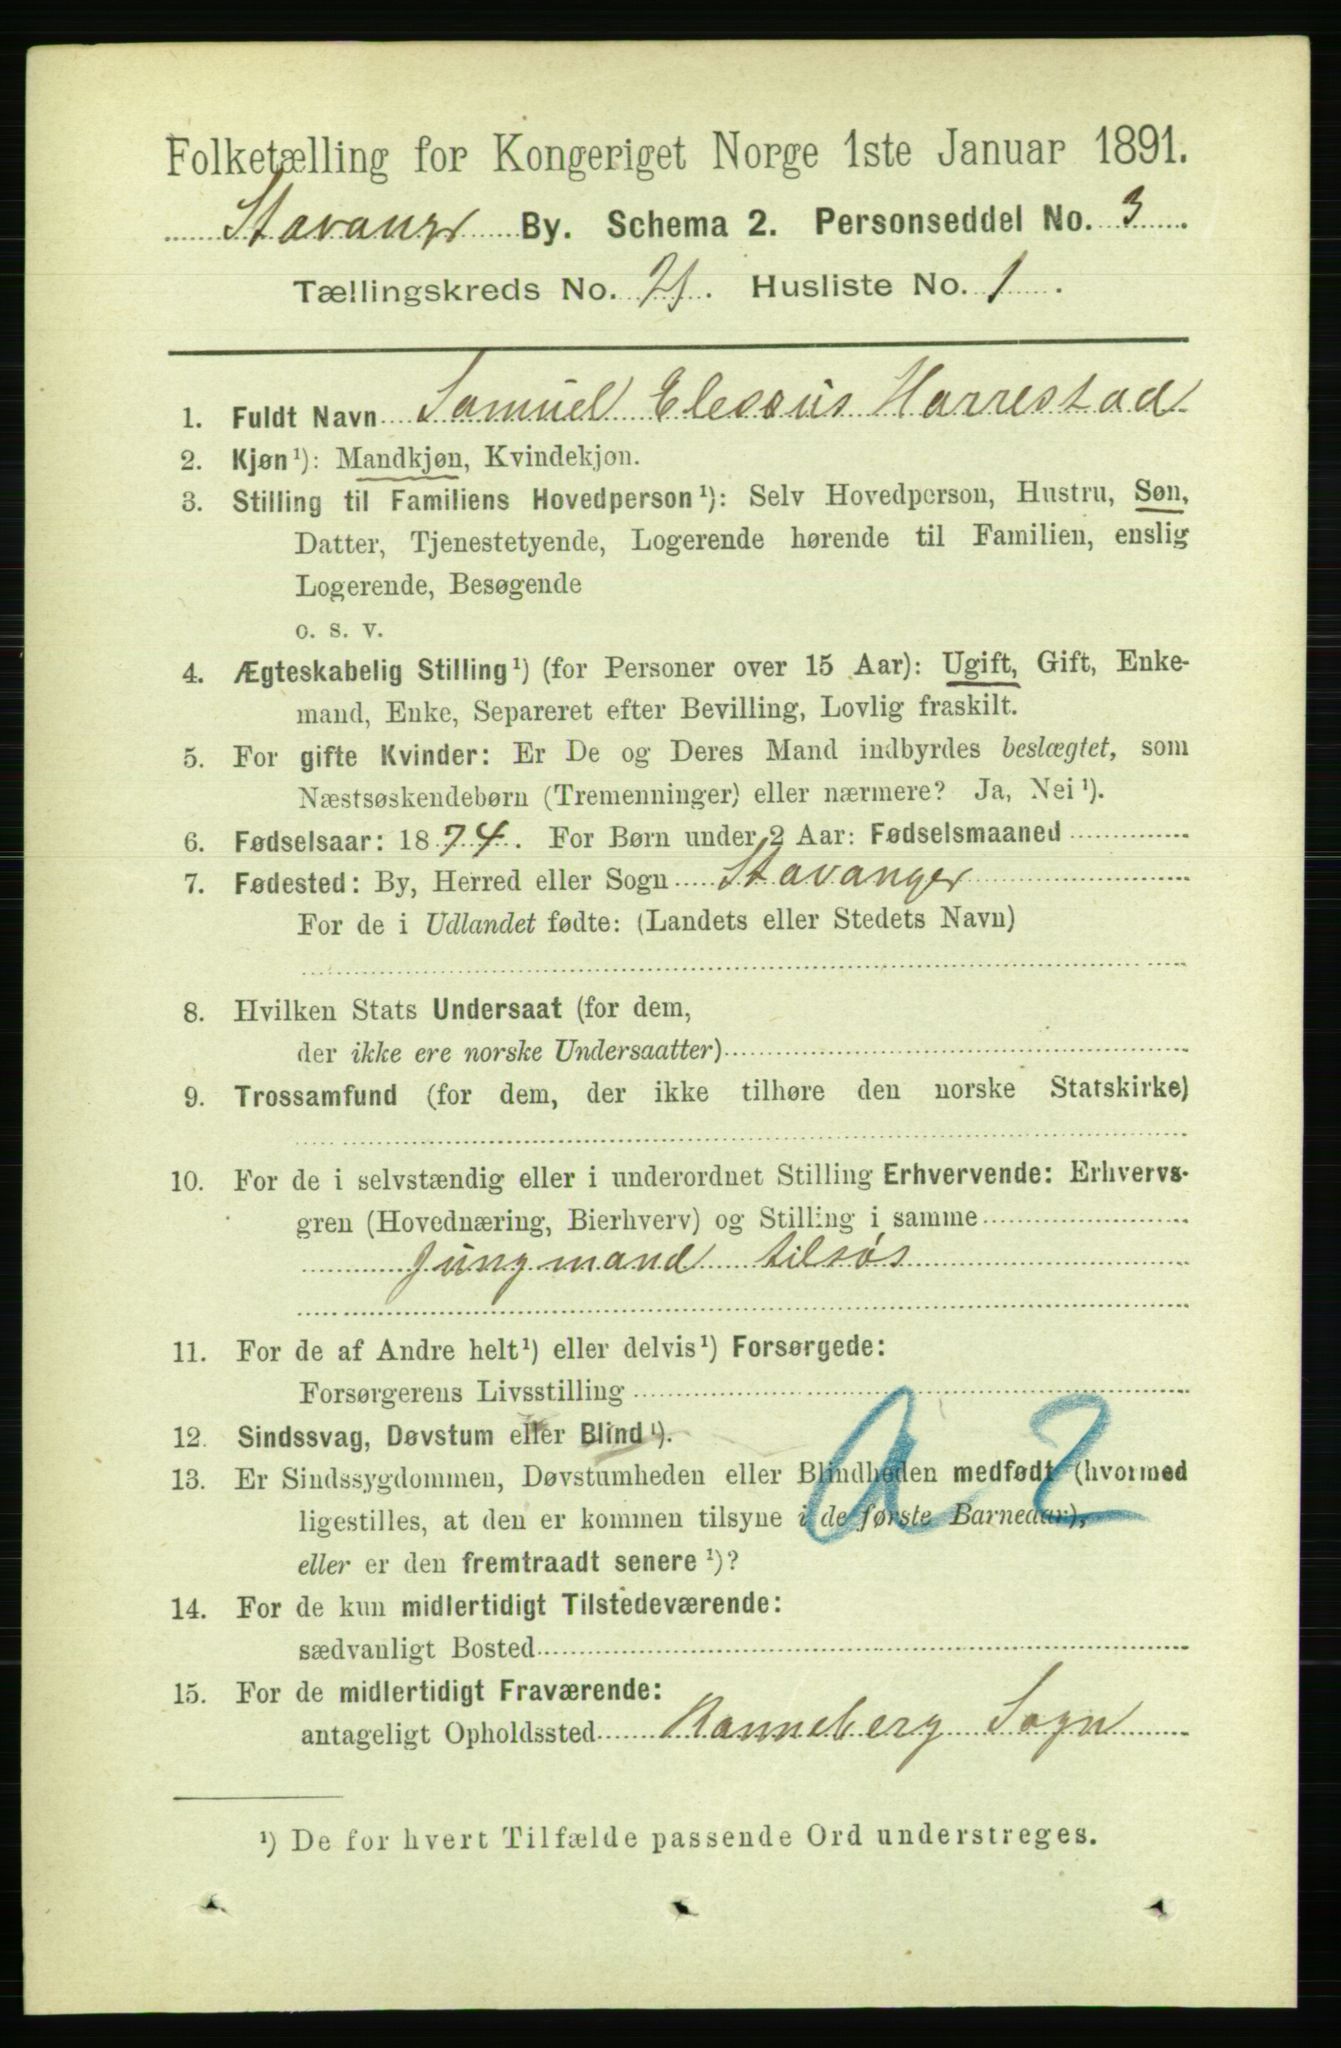 Folketælling for Kongeriget Norge 1ste Januar 1891.
Stavanger By. Schema 2. Personseddel No. 3.
Tællingskreds No. 21. Husliste No. 1.
1. Fuldt Navn Samuel Elesæus Harrestad
2. Kjøn¹): Mandkjøn, Kvindekjøn.
3. Stilling til Familiens Hovedperson¹): Selv Hovedperson, Hustru, Søn,
Datter, Tjenestetyende, Logerende hørende til Familien, enslig
Logerende, Besøgende
o. s. v.
4. Ægteskabelig Stilling¹) (for Personer over 15 Aar): Ugift, Gift, Enke-
mand, Enke, Separeret efter Bevilling, Lovlig fraskilt.
5. For gifte Kvinder: Er De og Deres Mand indbyrdes beslægtet, som
Næstsøskendebørn (Tremenninger) eller nærmere? Ja, Nei¹).
6. Fødselsaar: 1874. For Børn under 2 Aar: Fødselsmaaned
7. Fødested: By, Herred eller Sogn Stavanger
For de i Udlandet fødte: (Landets eller Stedets Navn)
8. Hvilken Stats Undersaat (for dem,
der ikke ere norske Undersaatter)
9. Trossamfund (for dem, der ikke tilhøre den norske Statskirke)
10. For de i selvstændig eller i underordnet Stilling Erhvervende: Erhvervs-
gren (Hovednæring, Bierhverv) og Stilling i samme
Jungmand tilsøs
11. For de af Andre helt¹) eller delvis¹) Forsørgede:
Forsørgerens Livsstilling
12. Sindssvag, Døvstum eller Blind¹).
13. Er Sindssygdommen, Døvstumheden eller Blindheden medfødt (hvormed
ligestilles, at den er kommen tilsyne i de første Barneaar),
eller er den fremtraadt senere¹)?
14. For de kun midlertidigt Tilstedeværende:
sædvanligt Bosted
15. For de midlertidigt Fraværende:
antageligt Opholdssted Ranneberg Sogn
¹) De for hvert Tilfælde passende Ord understreges.